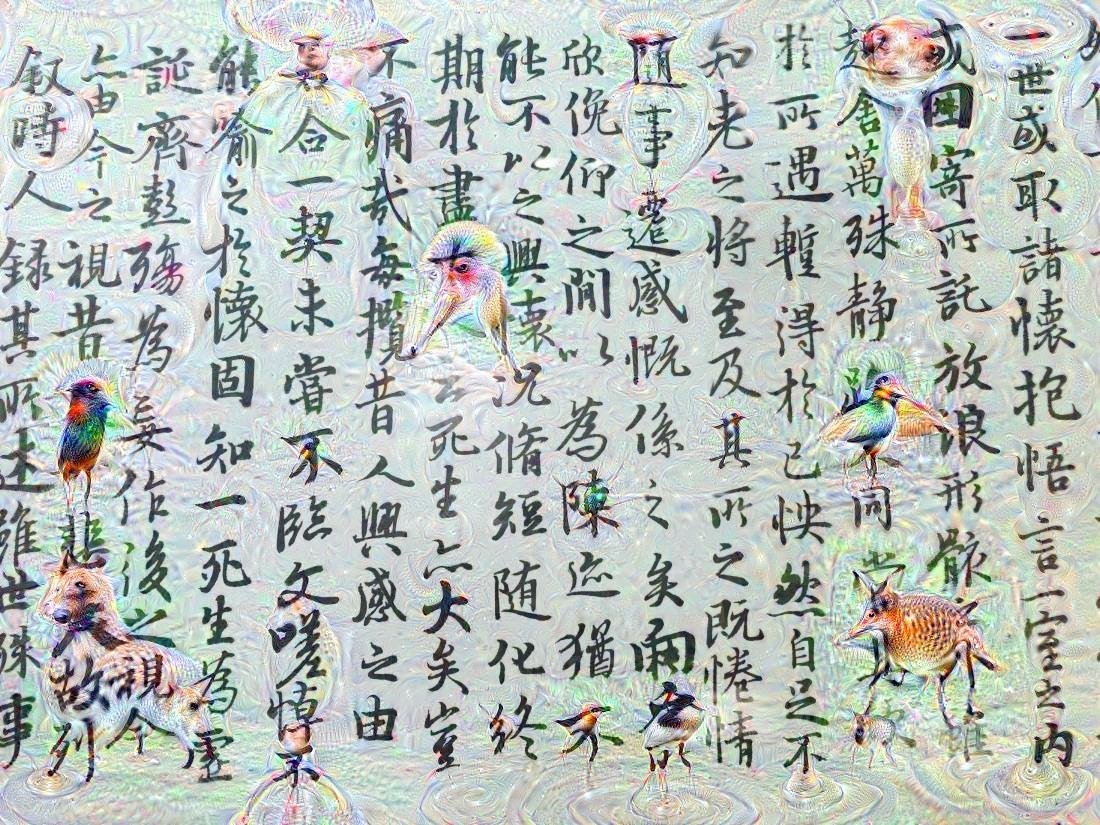 一世或取諸懷抱悟言一室之內
或因寄所託放浪形骸雖
舍萬殊靜同
於所遇暫得於己怏然自足不
知老之將至及其所之既惓情
事遷感慨係之矣
欣俛仰之閒以為陳迹猶不
能不以之興懷況脩短隨化終
期於盡云死生亦大矣豈
不痛哉每攬昔人興感之由
合一契未嘗不臨文嗟悼不
能喻之於懷固知一死生為虛
誕齊彭殤為妄作後之視今
亦由今之視昔悲故列
叙時人錄其所述雖世殊事